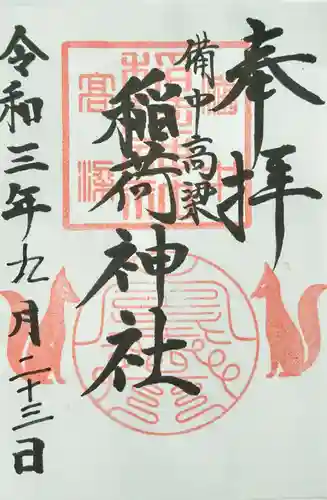 奉拝
備中高梁
稲荷神社
令和三年九月二十三日